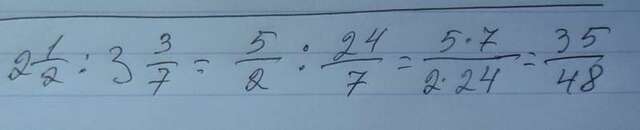 2 1/2 : 3 3/7 = 5/2 : 24/7 = 5·7/2·24 = 35/48